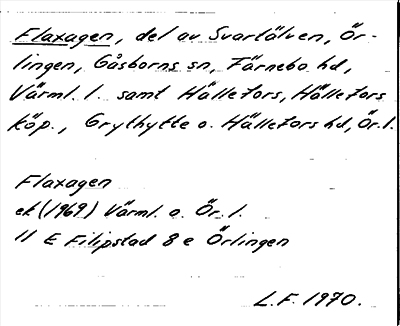 Flaxagen, del av Svartälven, Ör-
lingen, Gåsborns sn, Färnebo hd,
Värml. l. samt Hällefors, Hällefors
köp., Grythytte o. Hällefors hd, Ör. l.
Flaxagen
ek (1969) Värml. o. Ör. l.
11 E Filipstad 8 e Örlingen
L.F. 1970.